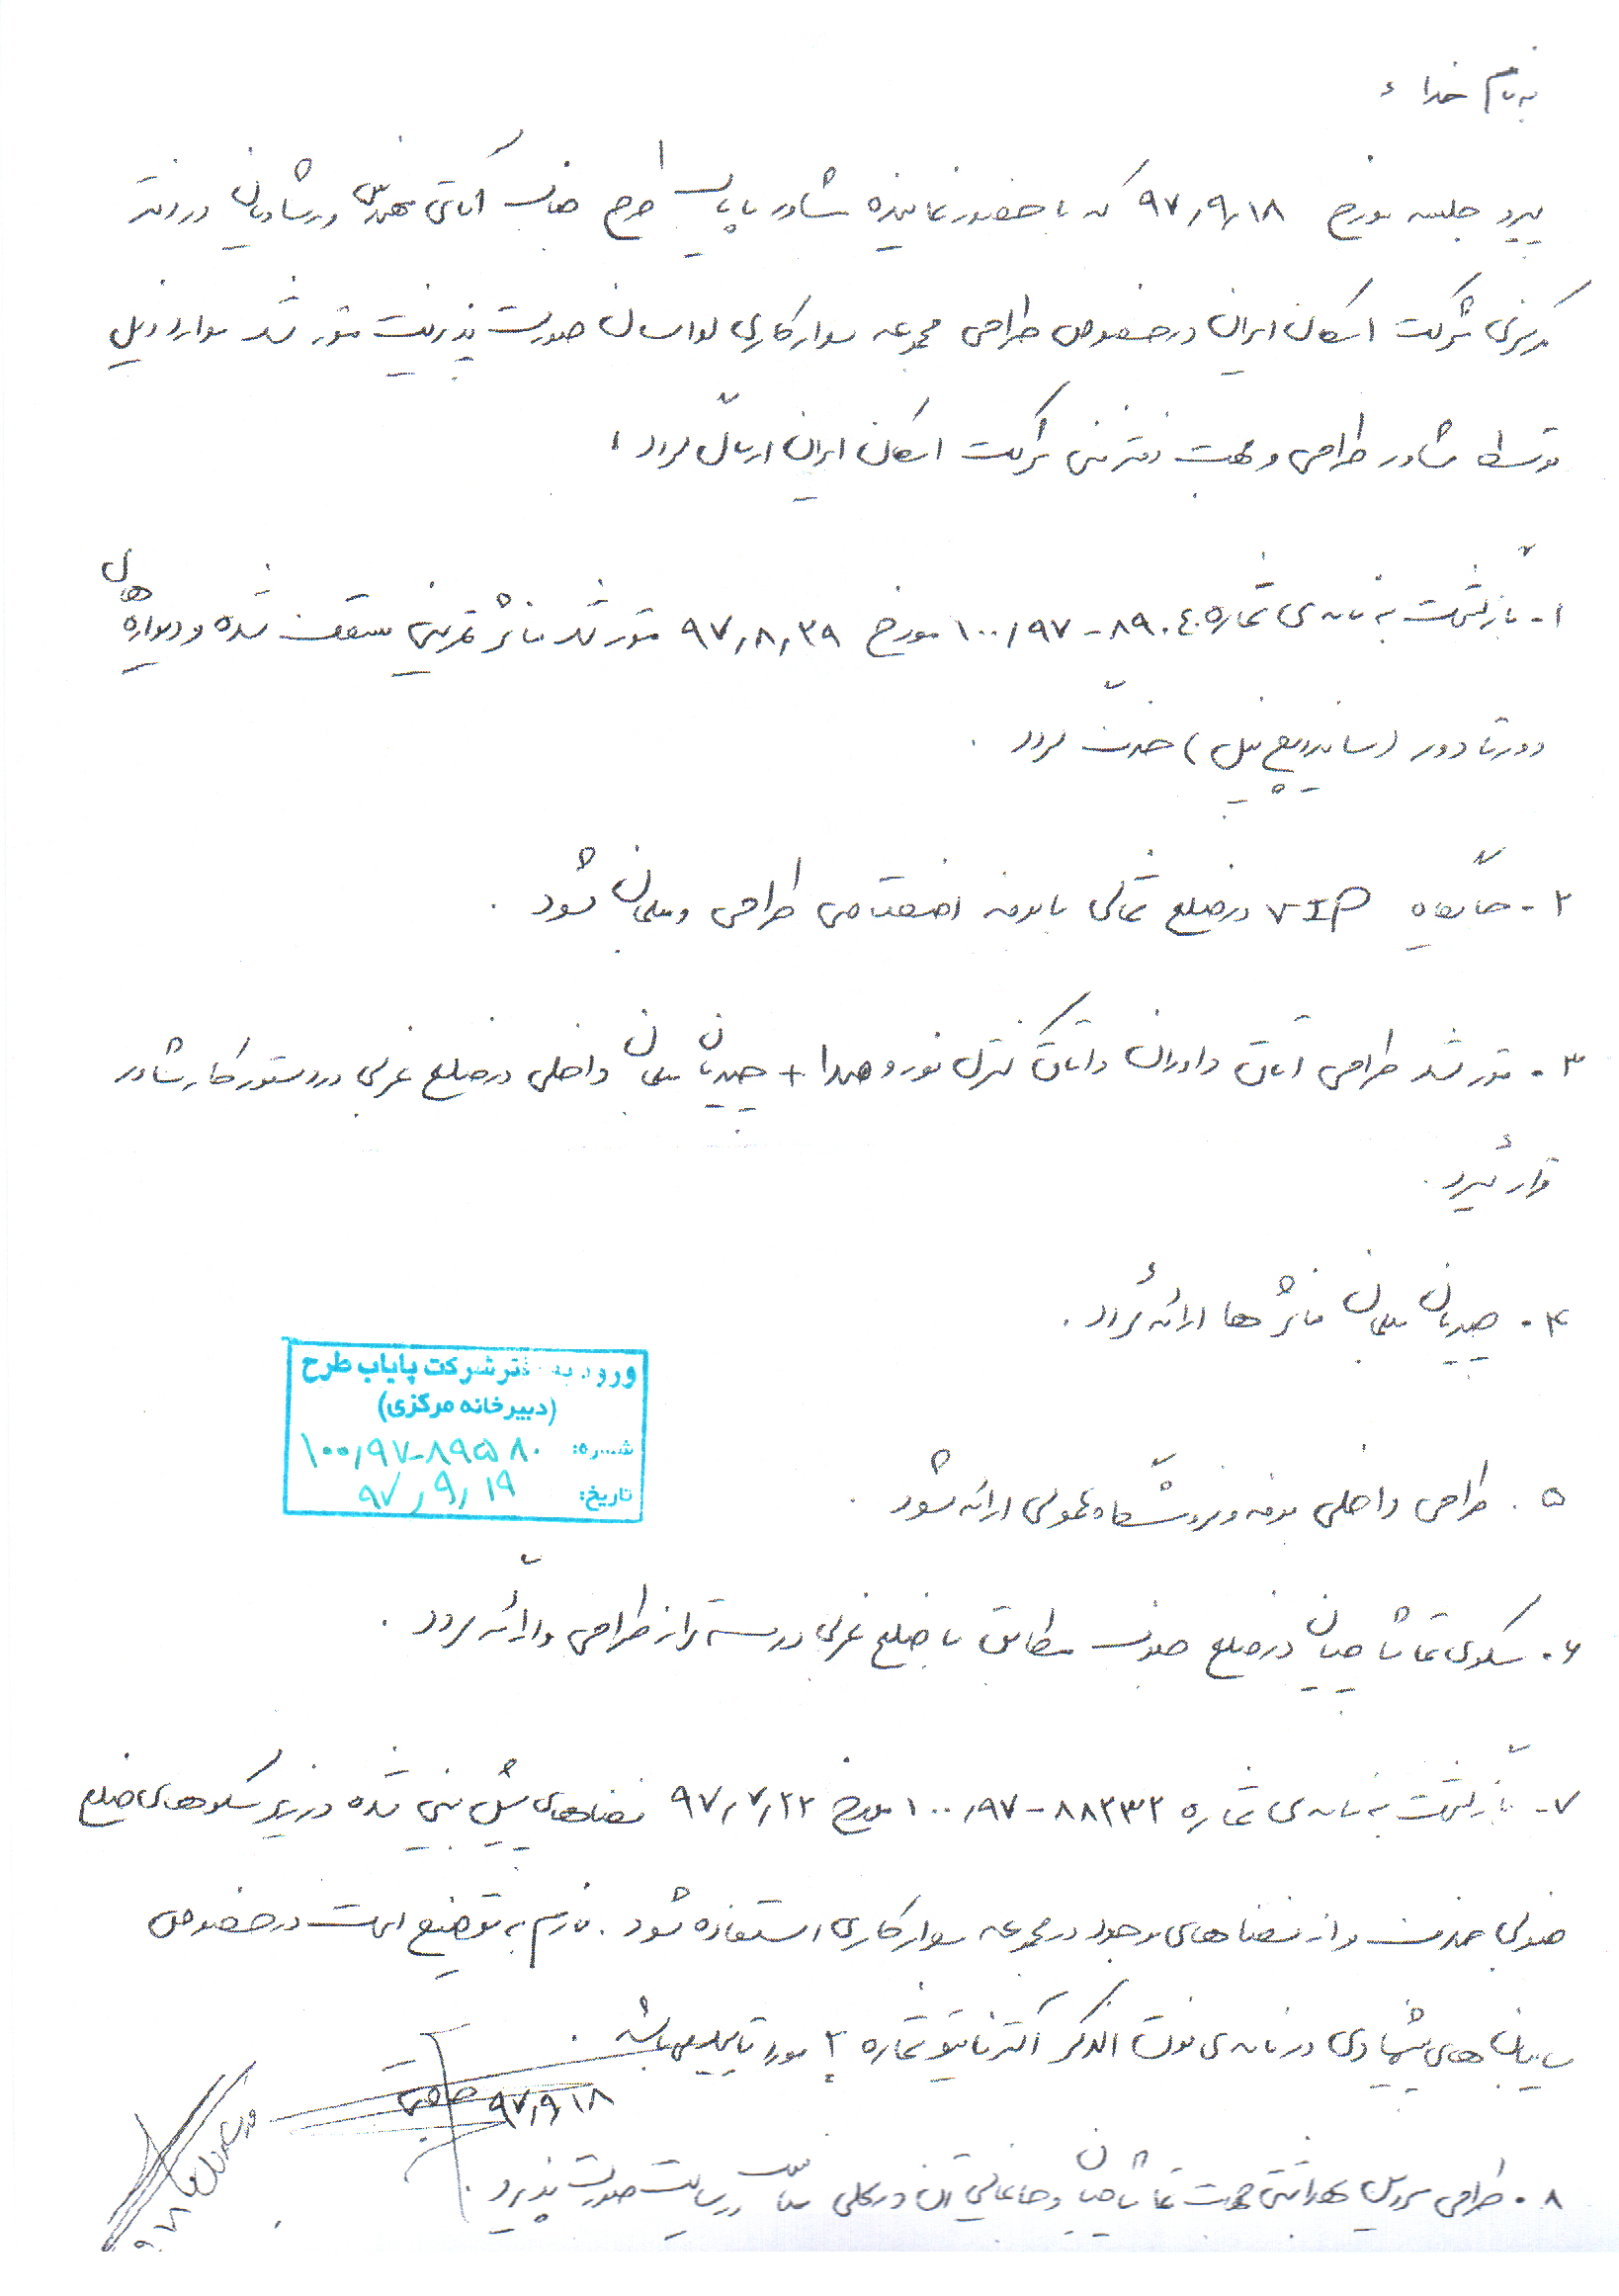 به نام خدا
پیرو جلسه مورخ ۹۷,۹,۱۸ که با حضور نماینده مشاور پایاب طرح جناب آقای مهندس ورشاویان در دفتر
مرکزی شرکت اسکان ایران درخصوص طراحی مجموعه سوارکاری لواسان صورت پذیرفت مقرر شد موارد ذیل
توسط مشاور طراحی و جهت دفتر فنی شرکت اسکان ایران ارسال گردد :
۱- بازگشت به نامه ی شماره ۸۹۰۴۰-۱۰۰,۹۷ مورخ ۹۷,۸,۲۹ مقرر شد مانژ تمرینی مسقف شده و دیواره های
دورتادور (ساندویچ پنل) حذف گردد .
۲- جایگاه VIP در ضلع شمالی با بوفه اختصاصی طراحی و مبلمان شود .
۳- مقرر شد طراحی اتاق داوران و اتاق کنترل نور و صدا + چیدمان مبلمان داخلی در ضلع غربی در دستور کار مشاور
قرار گیرد .
۴- چیدمان مبلمان مانژ ها ارائه گردد .
۵- طراحی داخلی بوفه و فروشگاه عمومی ارائه شود .
۶- سکوی تماشاچیان در ضلع جنوب مطابق با ضلع غربی در سه تراز طراحی و ارائه گردد .
۷- بازگشت به نامه ی شماره ۸۸۲۳۲-۱۰۰,۹۷ مورخ ۹۷,۷,۲۲ فضاهای پیش بینی شده در زیر سکوهای ضلع
جنوبی حذف و از فضاهای موجود در مجموعه سوارکاری استفاده شود . لازم به توضیح است درخصوص
سایبان های پیشنهادی در نامه ی فوق الذکر آلترناتیو شماره ۲ مورد تایید می باشد .
۹۷,۹,۱۸
۸- طراحی سرویس بهداشتی جهت تماشاچیان و جانمایی آن در محلی مناسب در سایت صورت پذیرد .
ورود به دفتر شرکت پایاب طرح
(دبیرخانه مرکزی)
شماره: ۱۰۰,۹۷-۸۹۵۸۰
تاریخ: ۹۷,۹,۱۹